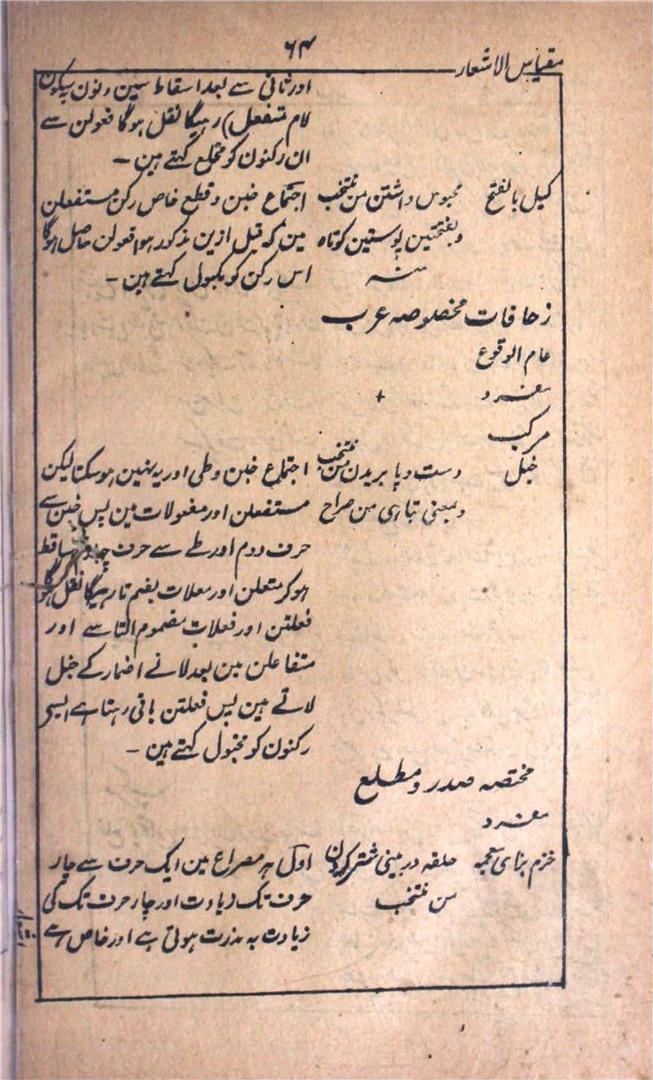 ۶۴
مقیاس الاشعار
اور ثانی سے بعد اسقاط سین و نون بسکون
لام متفعل) رہیگا نقل ہوگا فعولن سے
ان رکنون کو مخلع کہتے ہین ۔
کبل بالفتح محبوس داشتن من منتخب اجتماع خبن و قطع خاص رکن مستفعلن
و بفتحتین پوستین کوتاه مین کہ قبل ازین مذکور ہوا فعولن حاصل ہوگا
منہ اس رکن کو مکبول کہتے ہین ۔
زحافات مخصوصہ عرب
عام الوقوع
مفرد +
مرکب
خبل دست و پا بریدن من منتخب اجتماع خبن و طی اور یہ نہین ہوسکتا لیکن
و بمعنی تباہی من صراح مستفعلن اور مفعولات مین پس خبن سے
حرف دوم اور طے سے حرف چہارم ساقط
ہوکر متعلن اور معلات بضم تا رہیگا نقل ہوگا
فعلتن اور فعلات مضموم التا سے اور
متفاعلن مین بعد لانے اضمار کے خبل
لاتے ہین پس فعلتن باقی رہتا ہے ایسی
رکنون کو مخبول کہتے ہین ۔
مختصہ صدر و مطلع
مفرد
خزم بزای معجمہ حلقہ در بینی شتر کردن اول ہر مصراع مین ایک حرف سے چار
من منتخب حرف تک زیادت اور چار حرف تک کی
زیادت بہ ندرت ہوتی ہے اور خاص ہے